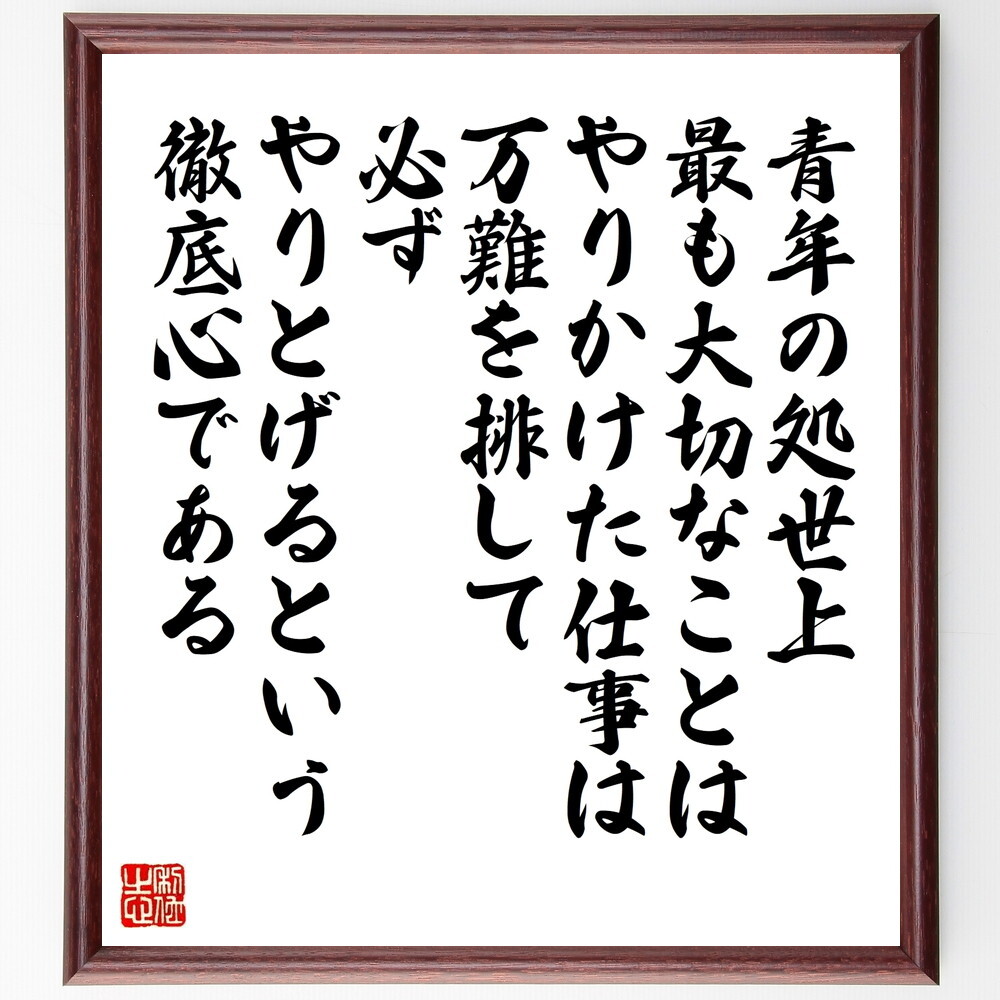 青年の処世上
最も大切なことは
やりかけた仕事は
万難を排して
必ず
やりとげるという
徹底心である